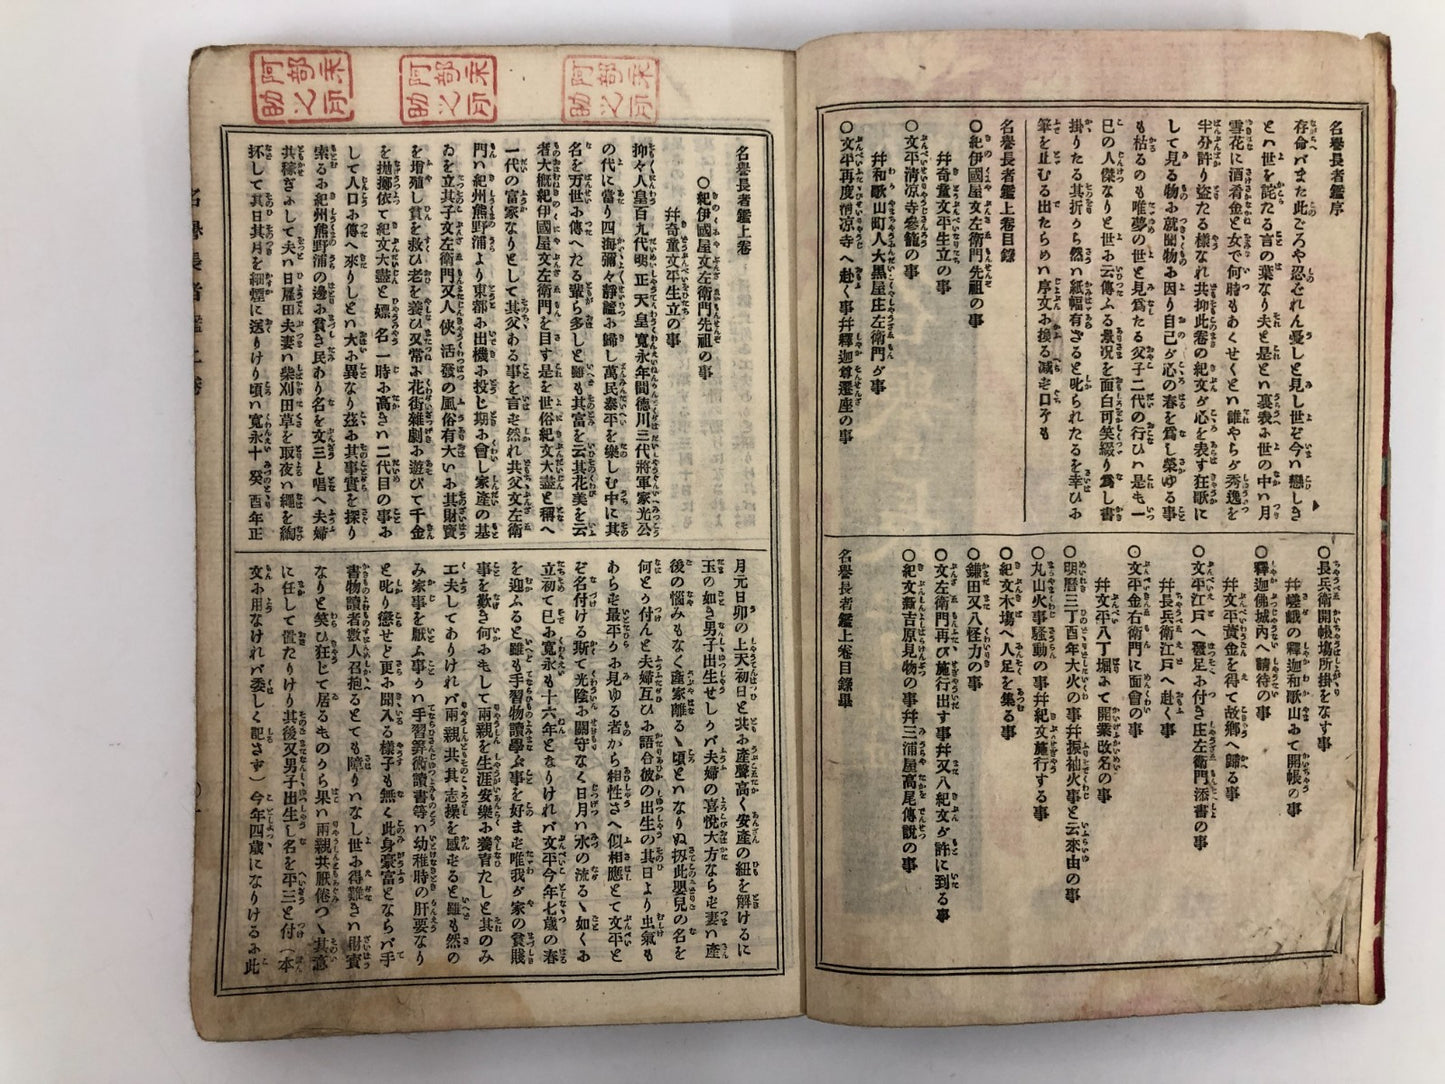 名譽長者鑑序
存命バまた此ごろや忍ばれん憂しと見し世ぞ今ハ戀しき
とハ世を詫たる言の葉なり夫と是とハ裏表ふ世の中ハ月
雪花に酒肴金と女で何時もあくせくとハ誰やらが秀逸を
半分許り盜たる樣なれ共抑此卷の紀文が心を表す狂歌に
して見る物ふ就聞物ふ因り自己が心の春を爲し榮ゆる事
も枯るのも唯夢の世と見爲たる父子二代の行ひハ是も一
己の人傑なりと世ふ云傳ふる景况を面白可笑綴り爲し書
掛りたる其折から然ハ紙幅有ざると叱られたるを幸ひふ
筆を止むる出たらめハ序文ふ換る减ず口デも
名譽長者鑑上卷目録
〇紀伊國屋文左衞門先祖の事
并奇童文平生立の事
〇文平清凉寺參籠の事
并和歌山町人大黑屋庄左衞門が事
〇文平再度清凉寺へ赴く事并釋迦尊遷座の事
〇長兵衞開帳塲所掛をなす事
并嵯峨の釋迦和歌山ふて開帳の事
〇釋迦佛城內へ請待の事
并文平黄金を得て故鄕へ歸る事
〇文平江戸へ發足ふ付き庄左衞門添書の事
并長兵衞江戸へ赴く事
〇文平金右衞門に面會の事
并文平八丁堀ふて開業改名の事
〇明曆三丁酉年大火の事并振袖火事と云來由の事
〇丸山火事騷動の事并紀文施行する事
〇紀文木塲へ人足を集る事
〇鎌田又八怪力の事
〇文左衞門再び施行出す事并又八紀文が許に到る事
〇紀文新吉原見物の事并三浦屋高尾傳說の事
名譽長者鑑上卷目録畢
名譽長者鑑上卷
〇紀伊國屋文左衞門先祖の事
并奇童文平生立の事
抑々人皇百九代明正天皇寬永年間德川三代將軍家光公
の代に當り四海彌々靜謐ふ歸し萬民泰平を樂しむ中に其
名を万世ふ傳へたる輩ら多しと雖も其富を云其花美を云
者大概紀伊國屋文左衞門を目す是を世俗紀文大盡と稱へ
一代の富家なりとして其父ある事を言ず然れ共父文左衞
門ハ紀州熊野浦より東都ふ出機ふ投じ期ふ會し家產の基
ゐを立其子文左衞門又人俠活潑の風俗有大いふ其財寶
を增殖し貧を救ひ老を養ひ又常ふ花街雜劇ふ遊びて千金
を抛擲依て紀文大盡と嫖名一時ふ高きハ二代目の事ふ
して人口ふ傳へ來りしとハ大ふ異なり茲ふ其事實を探り
索るふ紀州熊野浦の邊ふ貧き民あり名を文三と唱へ夫婦
共稼ぎふして夫ハ日雇田夫妻ハ柴刈田草を取夜ハ繩を綯
抔して其日其月を細煙に送りけり頃ハ寬永十癸酉年正
月元日卯の上天初日と共ふ產聲高く安產の紐を解けるに
玉の如き男子出生せしかバ夫婦の喜悅大方ならず妻ハ產
後の惱みもなく產家離るゝ頃とハなりぬ扨此嬰兒の名を
何とか付んと夫婦互ひふ語合彼の出生の其日より虫氣も
あらず最平らふ見ゆる者から相性さへ似相應とて文平と
ぞ名付ける斯て光陰ふ關守なく日月ハ水の流るゝ如くふ
立初て已ふ寬永も十六年となりけれバ文平今年七歲の春
を迎ふると雖も手習物讀學ぶ事を好まず唯我が家の貧賤
事を歎き何ふもして兩親を生涯安樂ふ養育たしと其のみ
工夫してありけれバ兩親共其志操を感ずると雖も然の
み家事を厭ふ事ハ手習算術讀書等ハ幼稚時の肝要なり
と叱り懲せど更ふ聞入る樣子も無く此身豪富とならバ手
書物讀者數人召抱るとても障りハなし世ふ得難きハ財寶
なりと笑ひ狂じて居るものから果ハ兩親共厭倦つゝ其意
に任して置たりけり其後又男子出生し名を平三と付(本
文ふ用なけれバ委しく記さず)今年四歲になりけるふ此